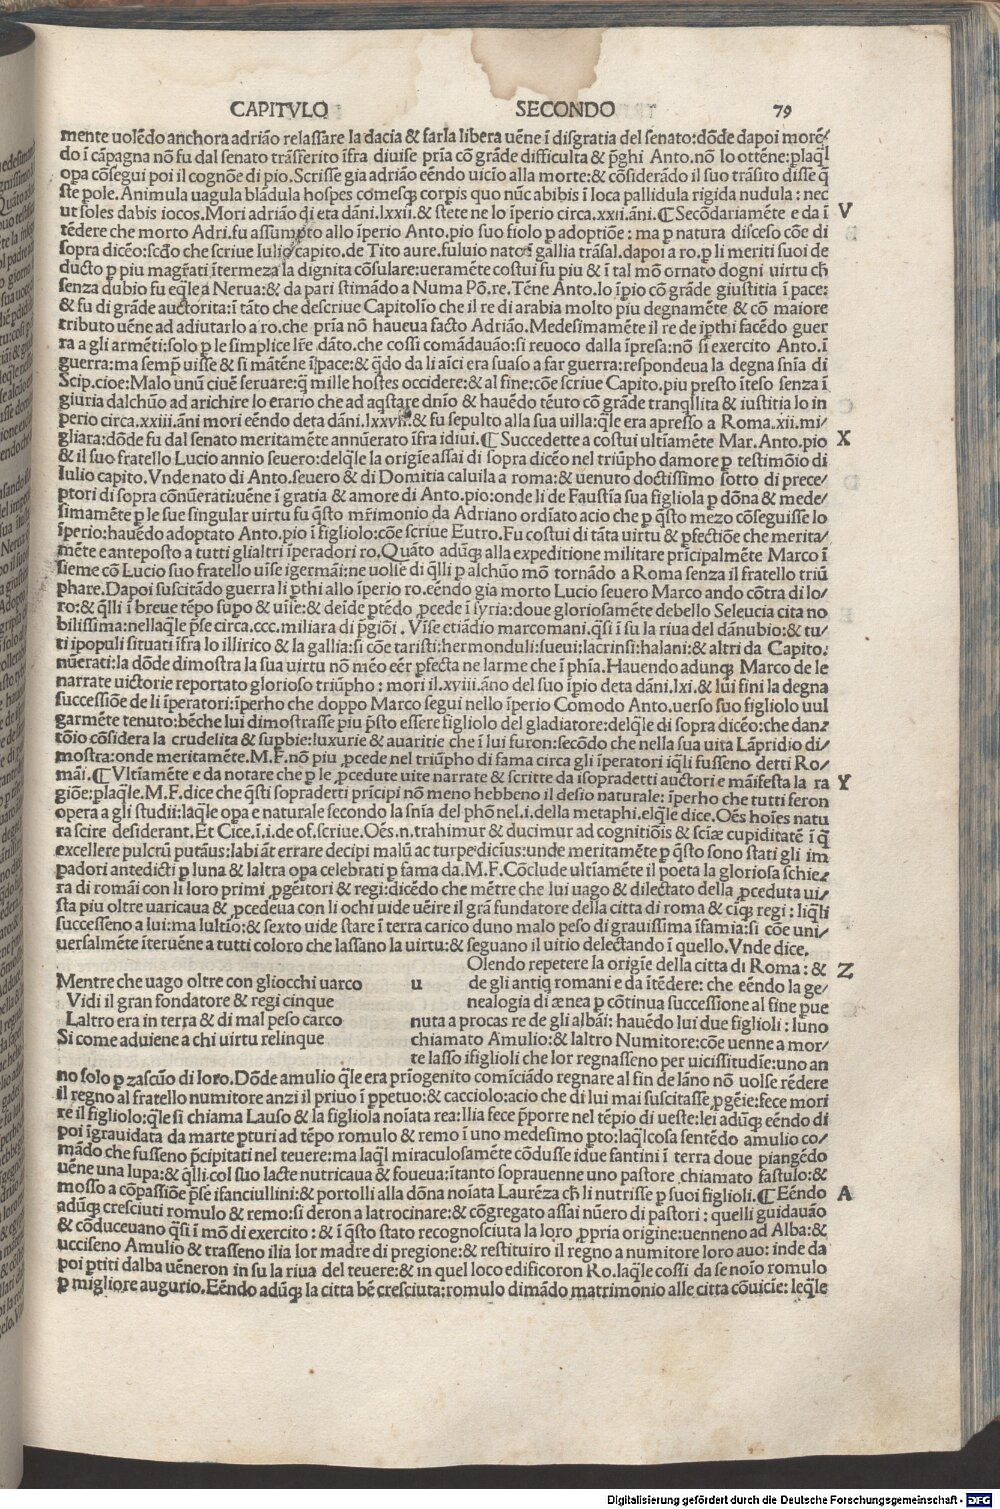 CAPITVLO SECONDO 79
mente uolẽdo anchora adrião relassare la dacia & farla libera uẽne ĩ disgratia del senato:dõde dapoi morẽ/
do ĩ cãpagna nõ fu dal senato trãsferito ĩfra diuise pria cõ grãde difficulta & p̃ghi Anto.nõ lo ottẽne:ꝑlaq̃l
opa cõsegui poi il cognõe di pio.Scrisse gia adrião eẽndo uicio alla morte:& cõsiderãdo il suo trãsito disse q̃
ste pole.Animula uagula blãdula hospes comesqꝫ corpis quo nũc abibis ĩ loca pallidula rigida nudula: nec
ut soles dabis iocos.Mori adrião di eta dãni.lxxii.& stete ne lo ĩperio circa.xxii.ãni.¶Secõdariamẽte e da ĩ V
tẽdere che morto Adri.fu assumpto allo ĩperio Anto.pio suo fiolo ꝑ adoptiõe: ma ꝑ natura disceso cõe di
sopra dicẽo:scďo che scriue Iulio capito.de Tito aure.fuluio nato ĩ gallia trãsal.dapoi a ro.ꝑ li meriti suoi de
ducto ꝑ piu magr̃ati ĩtermeza la dignita cõsulare:ueramẽte costui fu piu & ĩ tal mõ ornato dogni uirtu ch̃
senza dubio fu eq̃le a Nerua:& da pari stimãdo a Numa Põ.re.Tẽne Anto.lo ĩpio cõ grãde giustitia ĩ pace:
& fu di grãde auctorita:ĩ tãto che descriue Capitolio che il re di arabia molto piu degnamẽte & cõ maiore
tributo uẽne ad adiutarlo a ro.che pria nõ haueua facto Adrião.Medesimamẽte il re de ipthi facẽdo guer
ra a gli armẽti:solo ꝑ le simplice lr̃e dãto.che cossi comãdauão:si reuoco dalla ĩpresa:nõ si exercito Anto.ĩ
guerra:ma semp̃ uisse & si mãtẽne ĩ pace:& q̃do da li aĩci era suaso a far guerra:respondeua la degna sñia di
Scip.cioe:Malo unũ ciuẽ seruare:q̃ mille hostes occidere:& al fine:cõe scriue Capito.piu presto ĩteso senza ĩ
giuria dalchũo ad arichire lo erario che ad aq̃stare dñio & hauẽdo tẽuto cõ grãde tranq̃llita & iustitia lo in
perio circa.xxiii.ãni mori eẽndo deta dãni.lxxvii.& fu sepulto alla sua uilla:q̃le era apresso a Roma.xii.mi/
gliara:dõde fu dal senato meritamẽte annũerato ĩfra idiui.¶Succedette a costui ultiamẽte Mar.Anto.pio X
& il suo fratello Lucio annio seuero:delq̃le la origĩe assai di sopra dicẽo nel triũpho damore ꝑ testimõio di
Iulio capito.Vnde nato di Anto.seuero & di Domitia caluila a roma:& uenuto doctissimo sotto di prece/
ptori di sopra cõnũerati:uẽne ĩ gratia & amore di Anto.pio:onde li de Faustĩa sua figliola ꝑ dõna & mede/
simamẽte ꝑ le sue singular uirtu fu q̃sto mr̃imonio da Adriano ordĩato acio che ꝑ q̃sto mezo cõseguisse lo
ĩperio:hauẽdo adoptato Anto.pio ĩ figliolo:cõe scriue Eutro.Fu costui di tãta uirtu & ꝑfectiõe che merita/
mẽte e anteposto a tutti glialtri ĩperadori ro.Quãto adũqꝫ alla expeditione militare prĩcipalmẽte Marco ĩ
sieme cõ Lucio suo fratello uĩse igermãi:ne uolse di q̃lli ꝑ alchũo mõ tornãdo a Roma senza il fratello triũ
phare.Dapoi suscitãdo guerra li pthi allo ĩperio ro.eẽndo gia morto Lucio seuero Marco ando cõtra di lo/
ro:& q̃lli ĩ breue tẽpo supo & uĩse:& deĩde ptẽdo ꝓcede ĩ syria:doue gloriosamẽte debello Seleucia cita no
bilissima:nellaq̃le p̃se circa.ccc.miliara di p̃giõi.Vĩse etiãdio marcomani.q̃si ĩ su la riua del dãnubio:& tu/
ti ipopuli situati ĩfra lo illirico & la gallia:si cõe taristi:hermonduli:sueui:lacrinsi:halani:& altri da Capito.
nũerati:la dõde dimostra la sua uirtu nõ mẽo eẽr ꝑfecta ne larme che ĩ phĩa.Hauendo adunqꝫ Marco de le
narrate uictorie reportato glorioso triũpho: mori il.xviii.ãno del suo ĩpio deta dãni.lxi.& lui fini la degna
successiõe de li ĩperatori:ĩperho che doppo Marco segui nello ĩperio Cõmodo Anto.uerso suo figliolo uul
garmẽte tenuto:bẽche lui dimostrasse piu p̃sto essere figliolo del gladiatore:delq̃le di sopra dicẽo:che dan/
tõio cõsidera la crudelita & supbie:luxurie & auaritie che ĩ lui furon:secõdo che nella sua uita Lãpridio di/
mostra:onde meritamẽte.M.F.nõ piu ꝓcede nel triũpho di fama circa gli ĩperatori iq̃li fusseno detti Ro/
mãi.¶Vltĩamẽte e da notare che ꝑ le ꝓcedute uite narrate & scritte da isopradetti auctori e mãifesta la ra Y
giõe:ꝑlaq̃le.M.F.dice che q̃sti sopradetti prĩcipi nõ meno hebbeno il desio naturale: ĩperho che tutti feron
opera a gli studii:laq̃le opa e naturale secondo la sñia del phõ nel.i.della metaphi.elq̃le dice.Oẽs hoĩes natu
ra scire desiderant.Et Cice.ĩ.i.de of.scriue.Oẽs.n.trahimur & ducimur ad cognitiõis & sciæ cupiditatẽ ĩ q̃
excellere pulcrũ putãus:labi ãt errare decipi malũ ac turpe dicĩus:unde meritamẽte ꝑ q̃sto sono stati gli im
padori antedicti ꝑ luna & laltra opa celebrati ꝑ fama da.M.F.Cõclude ultiamẽte il poeta la gloriosa schie/
ra di romãi con li loro primi ꝓgẽitori & regi:dicẽdo che mẽtre che lui uago & dilectato della ꝓceduta ui/
sta piu oltre uaricaua & ꝓcedeua con li ochi uide uẽire il grã fundatore della citta di roma & cĩqꝫ regi : liq̃li
successeno a lui:ma lultio:& sexto uide stare ĩ terra carico duno mal peso di grauissima ĩfamia:si cõe uni/
uersalmẽte ĩteruẽne a tutti coloro che lassano la uirtu:& seguano il uitio delectando ĩ quello.Vnde dice.
Mentre che uago oltre con gliocchi uarco
Vidi il gran fondatore & regi cinque
Laltro era in terra & di mal peso carco
Si come aduiene a chi uirtu relinque
u Olendo repetere la origĩe della citta di Roma: & Z
de gli antiq̃ romani e da ĩtẽdere: che eẽndo la ge/
nealogia di ænea ꝑ cõtinua successione al fine pue
nuta a procas re de gli albãi: hauẽdo lui due figlioli : luno
chiamato Amulio:& laltro Numitore:cõe uenne a mor/
te lasso ifiglioli che lor regnasseno per uicissitudĩe:uno an
no solo ꝑ zascũo di loro.Dõde amulio q̃le era priogenito comĩciãdo regnare al fin de lãno nõ uolse rẽdere
il regno al fratello numitore anzi il priuo ĩ ꝑpetuo:& cacciolo:acio che di lui mai suscitasse ꝓgẽie:fece mori
re il figliolo:q̃le si chiama Lauso & la figliola noĩata rea:Ilia fece p̃porre nel tẽpio di ueste:lei adũqꝫ eẽndo di
poi ĩgrauidata da marte pturi ad tẽpo romulo & remo ĩ uno medesimo pto:laq̃lcosa sentẽdo amulio co/
mãdo che fusseno p̃cipitati nel teuere:ma laq̃l miraculosamẽte cõdusse idue fantini ĩ terra doue piangẽdo
uẽne una lupa:& q̃lli.col suo lacte nutricaua & foueua:ĩtanto soprauenne uno pastore chiamato fastulo:&
mosso a cõpassiõe p̃se ifanciullini:& portolli alla dõna noĩata Laurẽza ch̃ li nutrisse ꝑ suoi figlioli.¶Eẽndo A
adũqꝫ cresciuti romulo & remo:si deron a latrocinare:& cõgregato assai nũero di pastori : quelli guidauão
& cõduceuano q̃si ĩ mõ di exercito : & ĩ q̃sto stato recognosciuta la loro ꝓpria origine:uenneno ad Alba:&
ucciseno Amulio & trasseno ilia lor madre di pregione:& restituiro il regno a numitore loro auo: inde da
poi ptiti dalba uẽneron in su la riua del teuere:& in quel loco edificoron Ro.laq̃le cossi da se noĩo romulo
ꝑ migliore augurio.Eẽndo adũqꝫ la citta bẽ cresciuta:romulo dimãdo matrimonio alle citta cõuicie: leq̃le
Digitalisierung gefördert durch die Deutsche Forschungsgemeinschaft - DFG